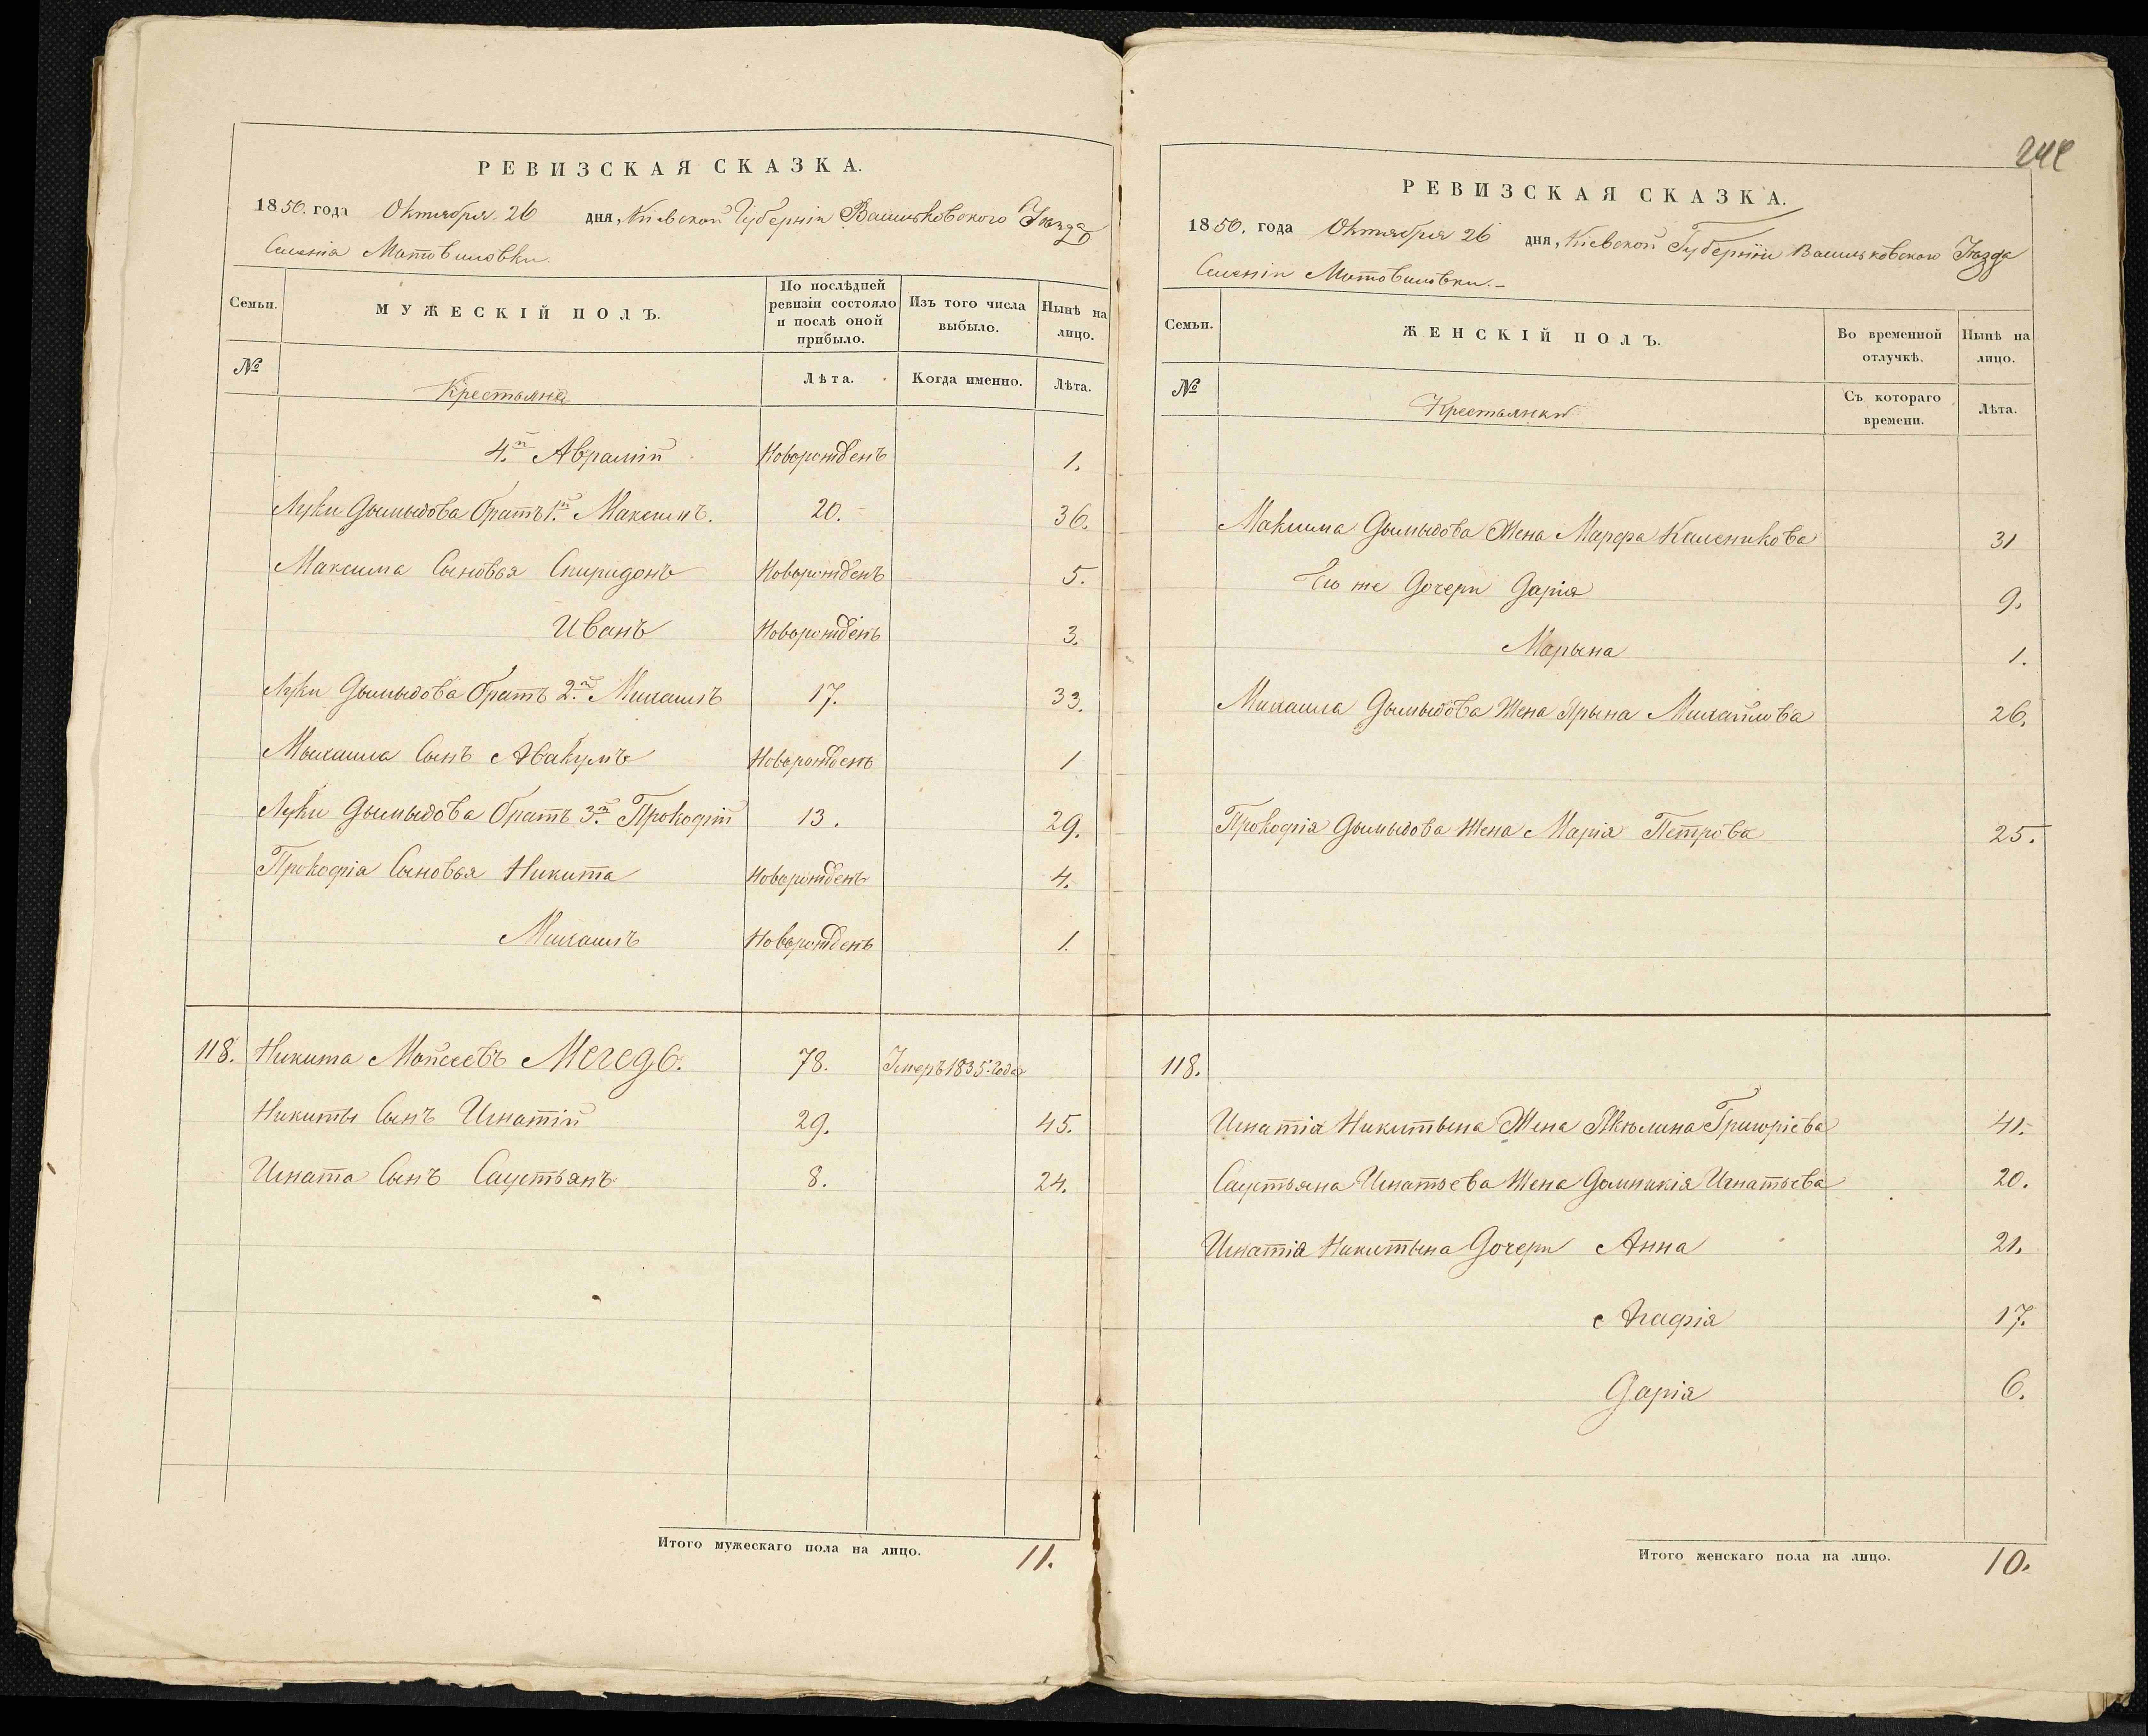 РЕВИЗСКАЯ СКАЗКА.
1850. года Октября 26 дня, Кіевской Губерніи Васильковскаго Уѣзда
Селенія Мотовиловки.
Семьи.
МУЖЕСКІЙ ПОЛЪ.
По послѣдней ревизіи состояло и послѣ оной прибыло.
Изъ того числа выбыло.
Нынѣ на лицо.
№
Крестьяне
Лѣта.
Когда именно.
Лѣта.
4.й Аврамій Новорожденъ 1.
Луки Дымыдова братъ 1.й Максимъ. 20. 36.
Максима Сыновья Спиридонъ Новорожденъ 5.
Иванъ Новорожденъ 3.
Луки Дымыдова братъ 2.й Михаилъ 17. 33.
Мыхаила Сынъ Авакумъ Новорожденъ 1
Луки Дымыдова братъ 3.й Прокофій 13. 29.
Прокофія Сыновья Никита Новорожденъ 4.
Михаилъ Новорожденъ 1.
118. Никита Мойсеевъ Мегедь. 78. Умеръ 1835. года
Никиты Сынъ Игнатій 29. 45.
Игната Сынъ Саустьянъ 8. 24.
Итого мужескаго пола на лицо. 11.
244
РЕВИЗСКАЯ СКАЗКА.
1850. года Октября 26 дня, Кіевской Губерніи Васильковского Уѣзда
Селеніи Мотовиловки.-
Семьи.
ЖЕНСКІЙ ПОЛЪ.
Во временной отлучкѣ.
Нынѣ на лицо.
№
Крестьянки
Съ котораго времени.
Лѣта.
Максима Дымыдова Жена Марфа Каленикова 31
Его же Дочери Дарія 9.
Марына 1.
Михаила Дымыдова Жена Ярына Михайлова 26.
Прокофія Дымыдова Жена Марія Петрова 25.
118.
Игнатія Никитына Жена Якылина Григоріева 41.
Саустьяна Игнатьева Жена Домникія Игнатьева 20.
Игнатія Никитына Дочери Анна 21.
Агафія 17.
Дарія 6.
Итого женскаго пола на лицо. 10.